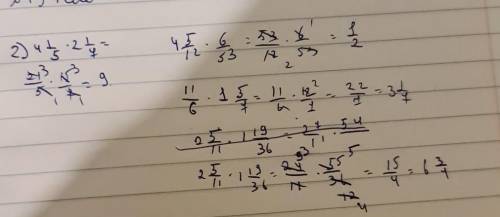 2) 4 1/5 · 2 1/7 =
21³/5₁ · 15³/7₁ = 9
4 5/12 · 6/53 = 53/12₂ · 6¹/53 = 1/2
11/6 · 1 5/7 = 11/6 · 12²/7 = 22/7 = 3 1/7
2 5/11 · 1 19/36 = 27/11 · 54
2 5/11 · 1 19/36 = 27³/11 · 55⁵/36₄ = 15/4 = 6 3/4